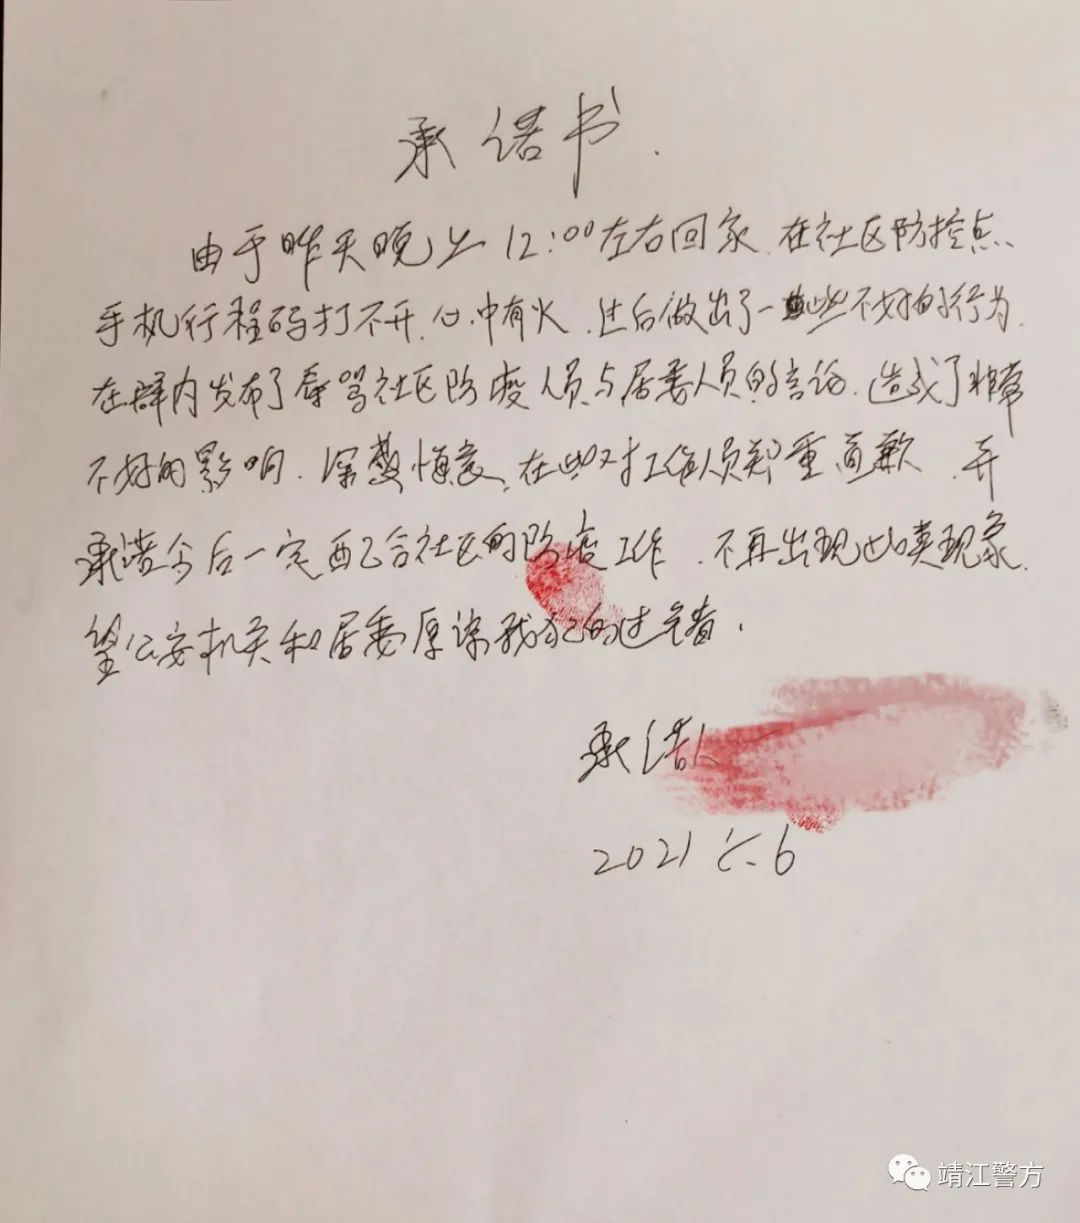 承诺书.
由于昨天晚上12:00左右回家.在社区防控点、
手机行程码打不开.心中有火.过后做出了一些不好的行为.
在群内发布了辱骂社区防疫人员与居委人员的言论.造成了非常
不好的影响.深感悔意.在此对工作人员郑重道歉.并
承诺今后一定配合社区的防疫工作.不再出现此类现象.
望公安机关和居委原谅我犯的过错.
承诺人
2021 六.6
靖江警方